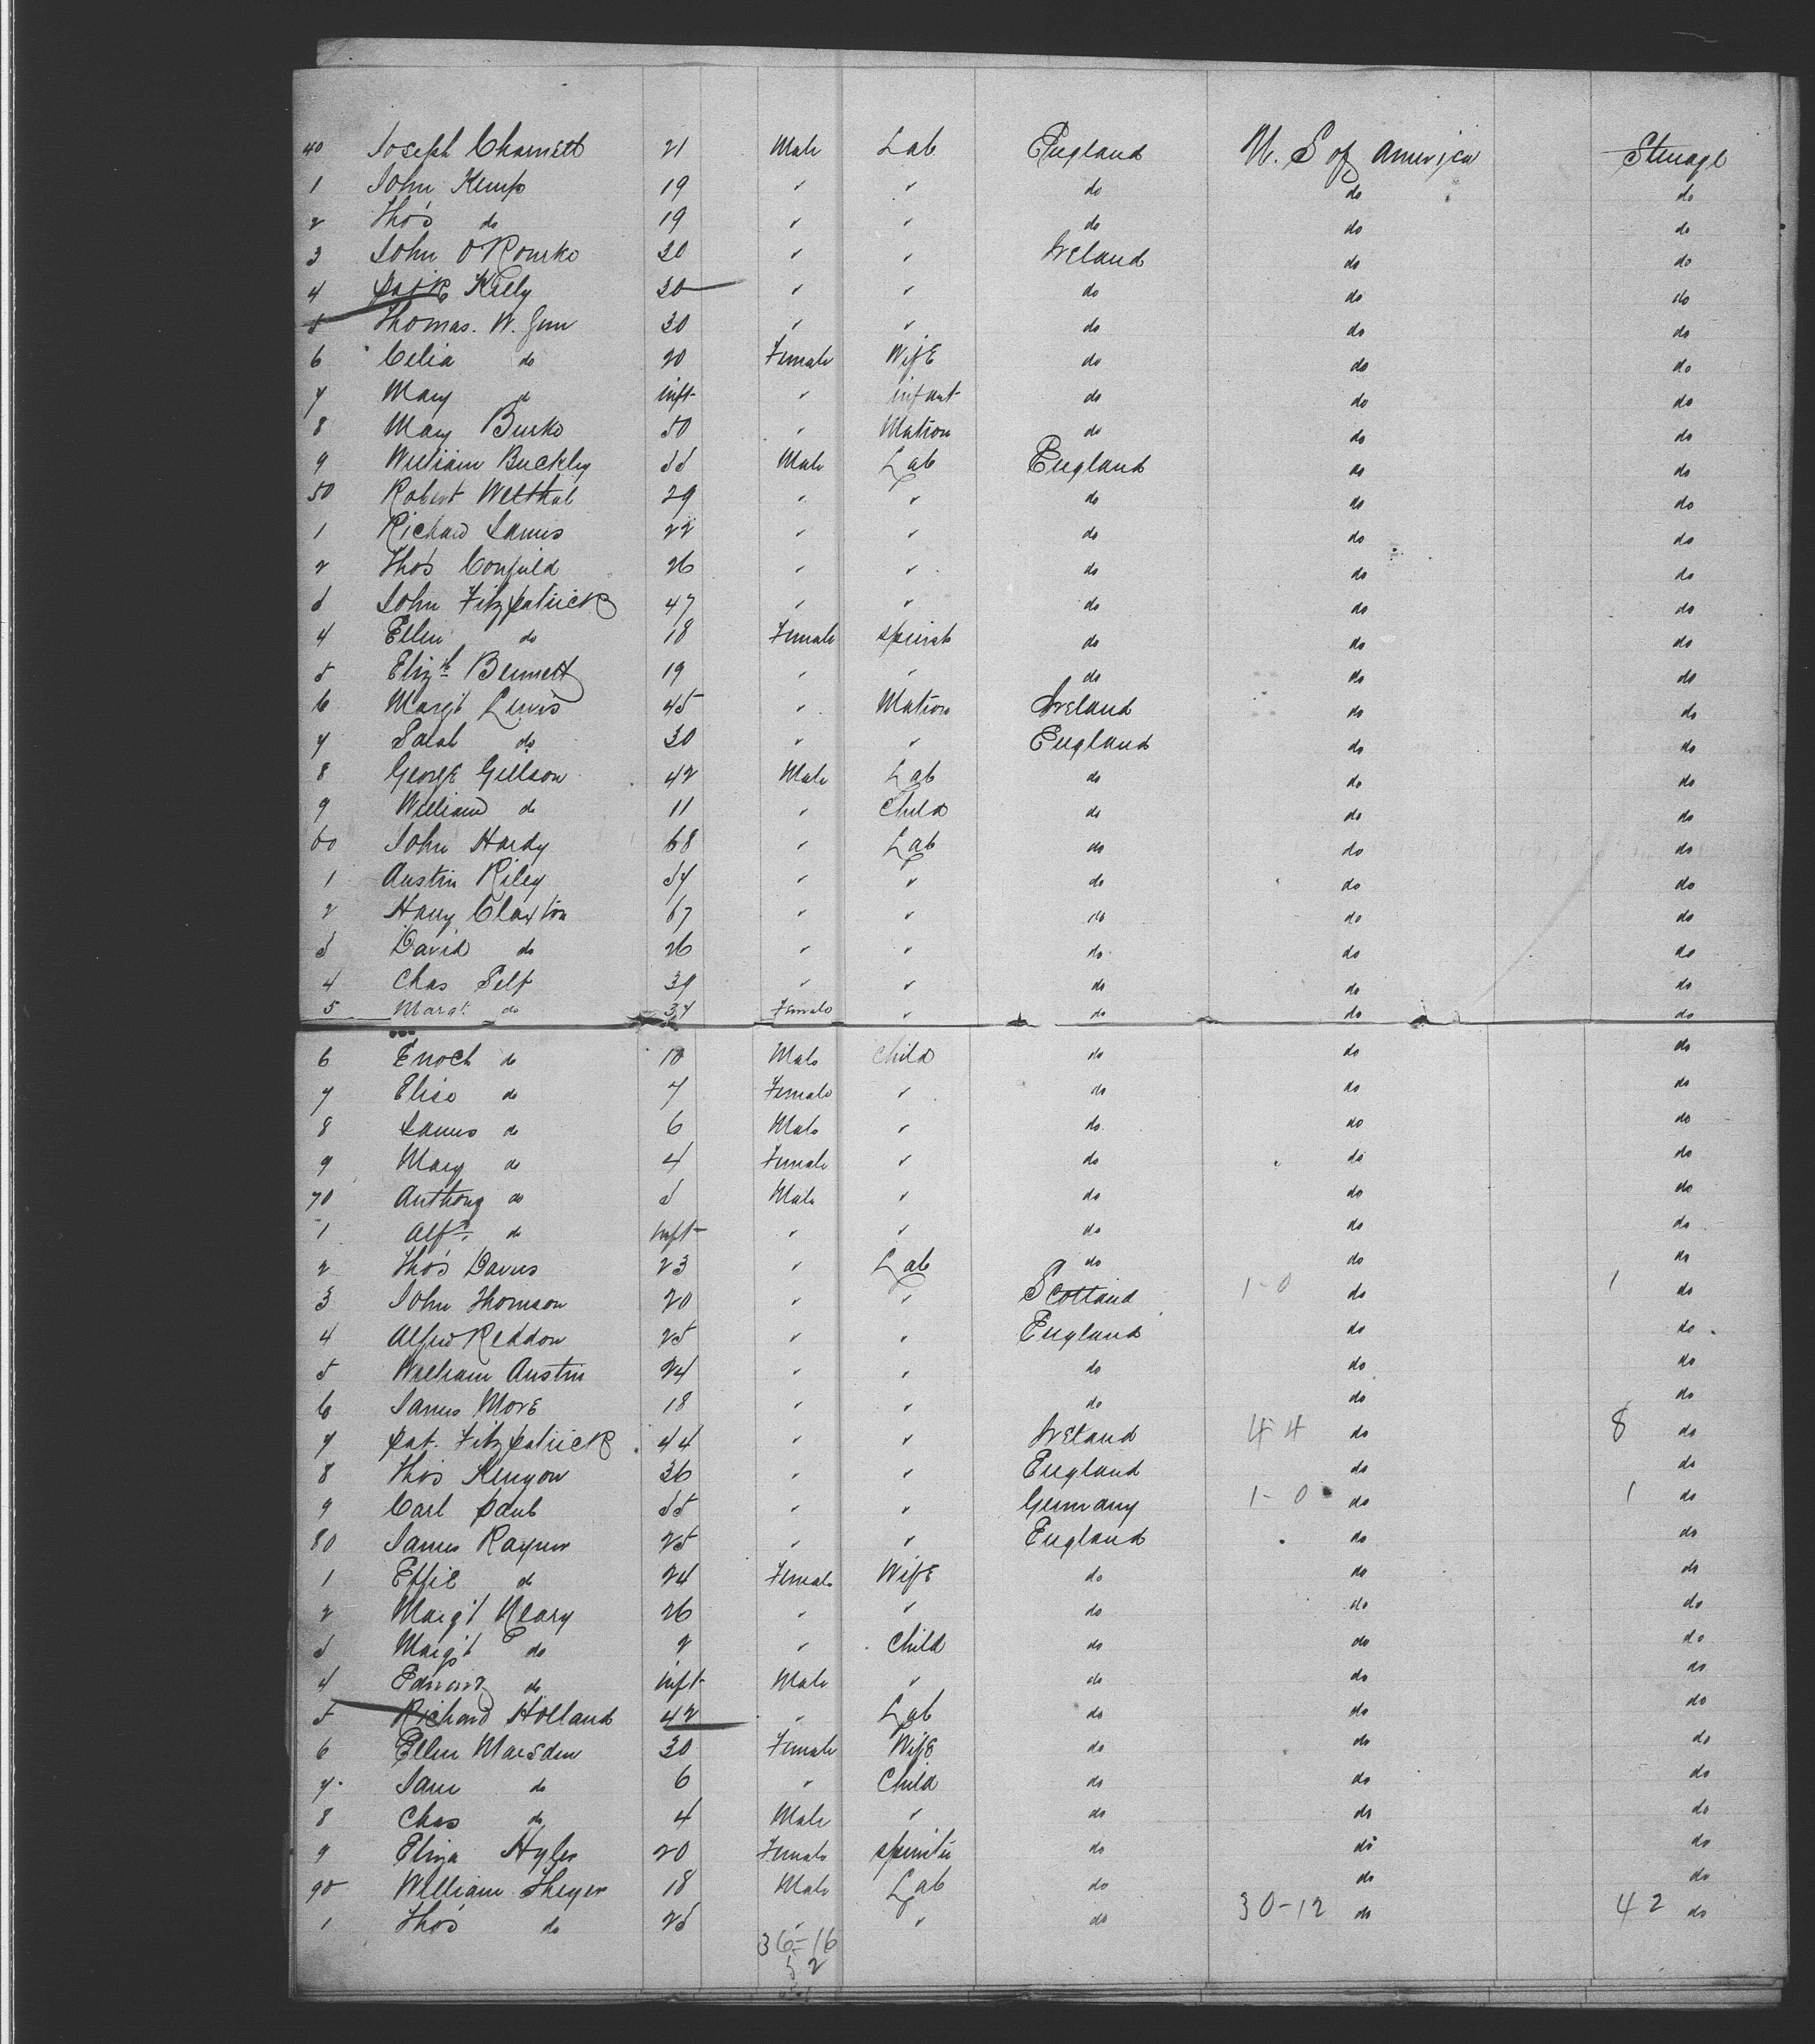 40 Joseph Charnett 21 Male Lab England U. S of America Steerage
1 John Kemp 19 " " do do do
2 Tho's do 19 " " do do do
3 John O'Rourke 30 " " Ireland do do
4 Patk Kelly 30 " " do do do
5 Thomas. W. Gun 30 " " do do do
6 Celia do 20 Female Wife do do do
7 Mary do inft " infant do do do
8 Mary Burke 50 " Matron do do do
9 William Buckley 35 Male Lab England do do
50 Robert 29 " " do do do
1 Richard James 22 " " do do do
2 Tho's Confield 26 " " do do do
3 John Fitzpatrick 47 " " do do do
4 Ellen do 18 Female Spinst do do do
5 Elizth Bennett 19 " " do do do
6 Marg't Lewis 45 " Matron Ireland do do
7 Sarah do 30 " " England do do
8 George Gillson 42 Male Lab do do do
9 William do 11 " Child do do do
60 John Hardy 68 " Lab do do do
1 Austin Riley 37 " " do do do
2 Harry Claxton 67 " " do do do
3 David do 26 " " do do do
4 Chas Self 39 " " do do do
5 Margt do 34 Female " do do do
6 Enoch do 10 Male Child do do do
7 Elise do 7 Female " do do do
8 James do 6 Male " do do do
9 Mary do 4 Female " do do do
70 Anthony do 3 Male " do do do
1 Alfd. do inft " " do do do
2 Tho's Davies 23 " Lab do do do
3 John Thomson 20 " " Scotland 1-0 do 1 do
4 Alfred Reddon 25 " " England do do
5 William Austin 24 " " do do do
6 James More 18 " " do do do
7 Pat. Fitzpatrick 44 " " Ireland 4-4 do 8 do
8 Tho's Kenyon 36 " " England do do
9 Carl Paul 35 " " Germany 1-0 do 1 do
80 James Rayner 25 " " England do do
1 Effie do 24 Female Wife do do do
2 Marg't Neary 26 " " do do do
3 Marg't do 2 " Child do do do
4 Edward do inft Male " do do do
5 Richard Holland 42 " Lab do do do
6 Ellen Marsden 30 Female Wife do do do
7 Jane do 6 " Child do do do
8 Chas do 4 Male " do do do
9 Eliza Hyles 20 Female Spinster do do do
90 William Theyer 18 Male Lab do do do
1 Tho's do 25 " " do 30-12 do 42 do
36-16
52